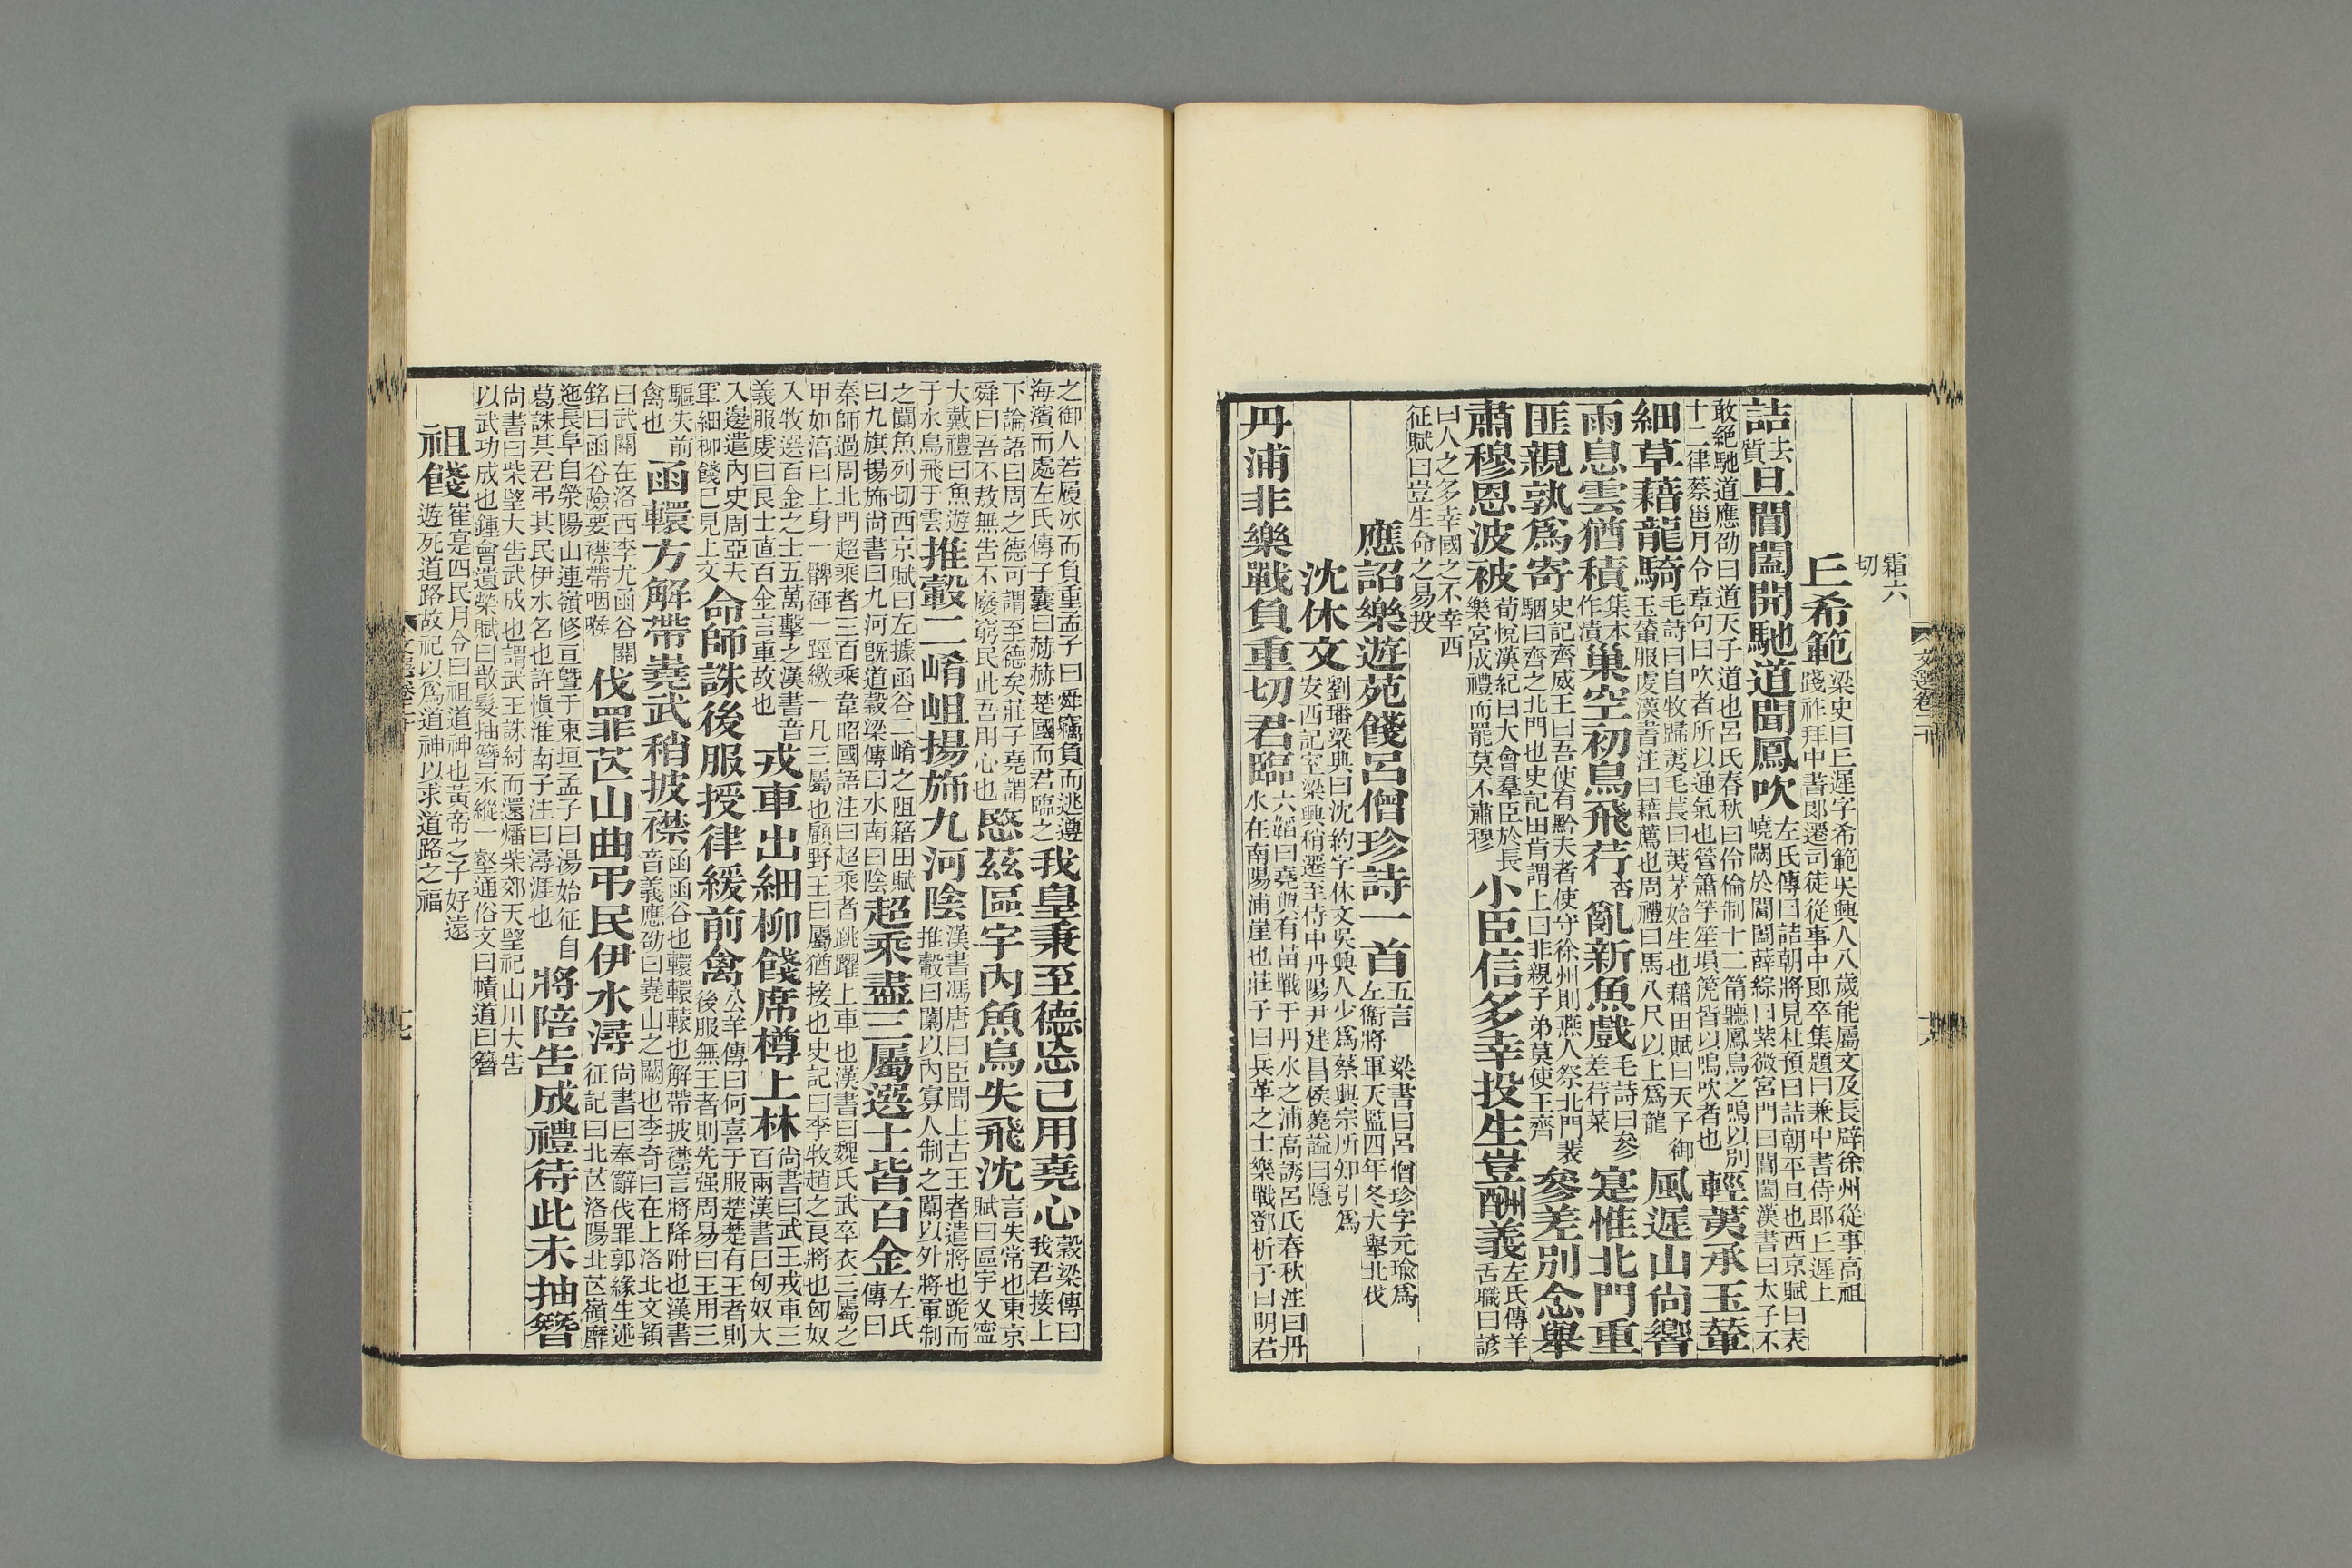 霜六切
丘希範梁史曰丘遲字希範吳興人八歲能屬文及長辟徐州從事高祖踐祚拜中書郎遷司徒從事中郎卒集題曰兼中書侍郎丘遲上
詰去質旦閶闔開馳道聞鳳吹左氏傳曰詰朝將見杜預曰詰朝平旦也西京賦曰表嶢闕於閶闔薛綜曰紫微宮門曰閶闔漢書曰太子不
敢絕馳道應劭曰道天子道也呂氏春秋曰伶倫制十二筩聽鳳鳥之鳴以別十二律蔡邕月令章句曰吹者所以通氣也管簫竽笙塤箎皆以鳴吹者也輕荑承玉輦
細草藉龍騎毛詩曰自牧歸荑毛萇曰荑茅始生也藉田賦曰天子御玉輦服虔漢書注曰藉薦也周禮曰馬八尺以上爲龍風遲山尚響
雨息雲猶積集本作漬巢空初鳥飛荇杏亂新魚戲毛詩曰參差荇菜寔惟北門重
匪親孰爲寄史記齊威王曰吾使有黔夫者使守徐州則燕人祭北門裴駰曰齊之北門也史記田肯謂上曰非親子弟莫使王齊參差別念舉
肅穆恩波被荀悅漢紀曰大會羣臣於長樂宮成禮而罷莫不肅穆小臣信多幸投生豈酬義左氏傳羊舌職曰諺
曰人之多幸國之不幸西征賦曰豈生命之易投
應詔樂遊苑餞呂僧珍詩一首五言梁書曰呂僧珍字元瑜爲左衞將軍天監四年冬大舉北伐
沈休文劉璠梁典曰沈約字休文吳興人少爲蔡興宗所知引爲安西記室梁興稍遷至侍中丹陽尹建昌侯薨謚曰隱
丹浦非樂戰負重切君臨六韜曰堯與有苗戰于丹水之浦高誘呂氏春秋注曰丹水在南陽浦崖也莊子曰兵革之士樂戰鄧析子曰明君
之御人若履冰而負重孟子曰舜竊負而逃遵海濱而處左氏傳子囊曰赫赫楚國而君臨之我皇秉至德忘己用堯心穀梁傳曰我君接上
下論語曰周之德可謂至德矣莊子堯謂舜曰吾不敖無告不廢窮民此吾用心也愍茲區宇內魚鳥失飛沈言失常也東京賦曰區宇乂寧
大戴禮曰魚遊于水鳥飛于雲推轂二崤岨揚斾九河陰漢書馮唐曰臣聞上古王者遣將也跪而推轂曰闑以內寡人制之闑以外將軍制
之闑魚列切西京賦曰左據函谷二崤之阻籍田賦曰九旗揚斾尚書曰九河既道穀梁傳曰水南曰陰超乘盡三屬選士皆百金左氏傳曰
秦師過周北門超乘者三百乘韋昭國語注曰超乘者跳躍上車也漢書曰魏氏武卒衣三屬之甲如淳曰上身一髀褌一踁繳一凡三屬也顧野王曰屬猶接也史記曰李牧趙之良將也匈奴
入牧選百金之士五萬擊之漢書音義服虔曰良士直百金言重故也戎車出細柳餞席樽上林尚書曰武王戎車三百兩漢書曰匈奴大
入邊遣內史周亞夫軍細柳餞已見上文命師誅後服授律緩前禽公羊傳曰何喜于服楚楚有王者則後服無王者則先强周易曰王用三
驅失前禽也函轘方解帶嶤武稍披襟函函谷也轘轘轅也解帶披襟言將降附也漢書音義應劭曰嶤山之關也李奇曰在上洛北文穎
曰武關在洛西李尤函谷關銘曰函谷險要襟帶咽喉伐罪芒山曲弔民伊水潯尚書曰奉辭伐罪郭緣生述征記曰北芒洛陽北芒嶺靡
迤長阜自滎陽山連嶺修亘暨于東垣孟子曰湯始征自葛誅其君弔其民伊水名也許慎淮南子注曰潯涯也將陪告成禮待此未抽簪
尚書曰柴望大告武成也謂武王誅紂而還燔柴郊天望祀山川大告以武功成也鍾會遺榮賦曰散髮抽簪永縱一壑通俗文曰幘道曰簪
祖餞崔寔四民月令曰祖道神也黃帝之子好遠遊死道路故祀以爲道神以求道路之福